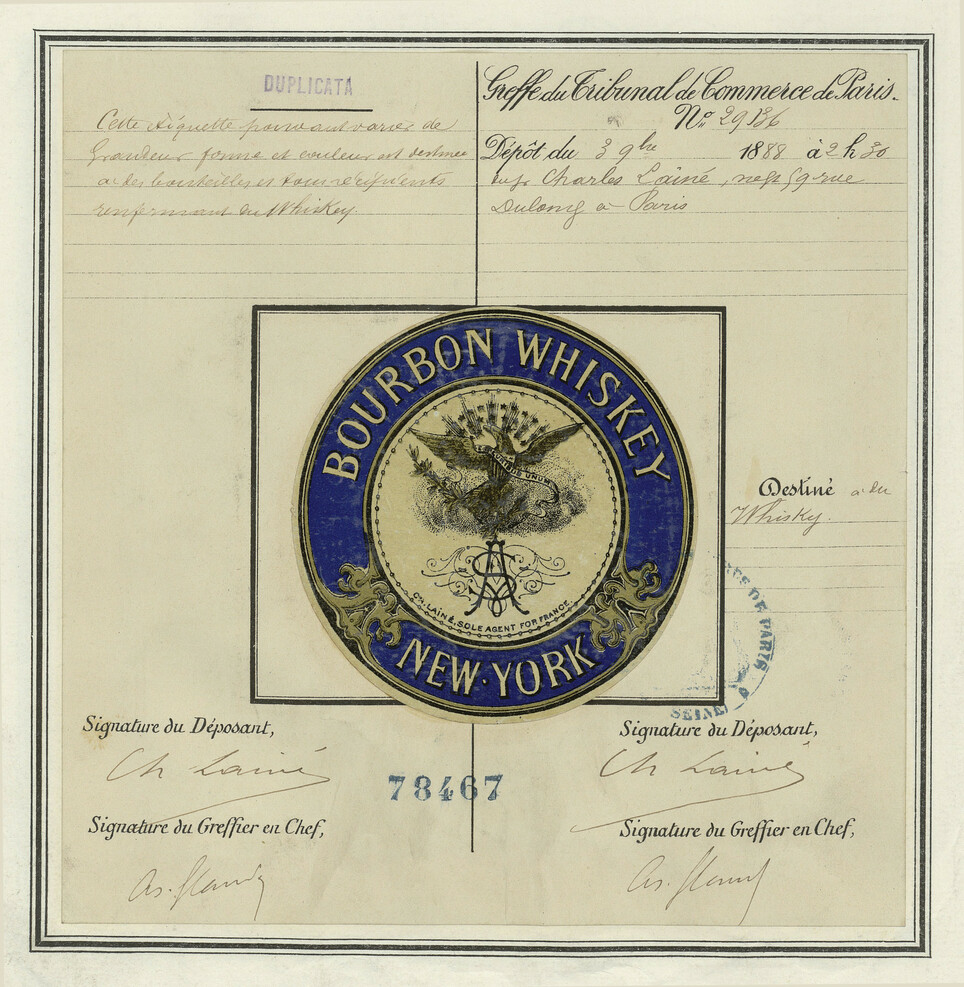 DUPLICATA
Cette étiquette pouvant varier de
Grandeur forme et couleur est destinée
à des bouteilles et tous récipients
renfermant du Whiskey.
Greffe du Tribunal de Commerce de Paris.
No. 29136
Dépôt du 3 9bre 1888 à 2 h 30
Charles Lainé, negt 59 rue
Dulong à Paris
BOURBON WHISKEY
UNUM
CH. LAINÉ, SOLE AGENT FOR FRANCE.
NEW·YORK
Destiné à du
Whisky.
DE PARIS
SEINE
Signature du Déposant,
Ch Lainé
Signature du Déposant,
Ch Lainé
78467
Signature du Greffier en Chef,
Signature du Greffier en Chef,